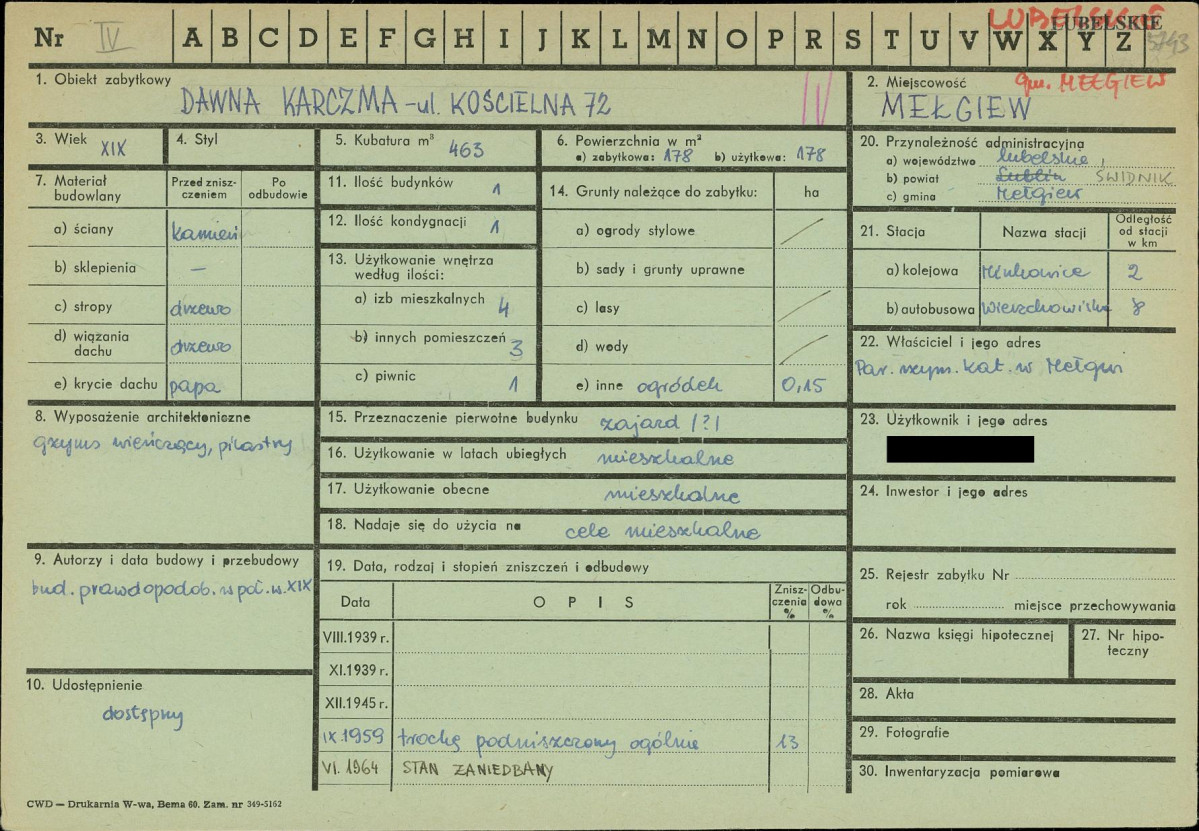 Nr IV A B C D E F G H I J K L M N O P R S T U V W X Y Z
LUBELSKIE
5743
1. Obiekt zabytkowy
DAWNA KARCZMA - ul. KOŚCIELNA 72
IV
2. Miejscowość gm. MEŁGIEW
MEŁGIEW
3. Wiek XIX
4. Styl
5. Kubatura m³ 463
6. Powierzchnia w m²
a) zabytkowa: 178 b) użytkowa: 178
7. Materiał budowlany
Przed znisz-
czeniem
Po
odbudowie
a) ściany kamień
b) sklepienia —
c) stropy drzewo
d) wiązania
dachu drzewo
e) krycie dachu papa
8. Wyposażenie architektoniczne
gzyms wieńczący, pilastry
9. Autorzy i data budowy i przebudowy
bud. prawdopodob. w poł. w. XIX
10. Udostępnienie
dostępny
11. Ilość budynków 1
12. Ilość kondygnacji 1
13. Użytkowanie wnętrza
według ilości:
a) izb mieszkalnych 4
b) innych pomieszczeń 3
c) piwnic 1
14. Grunty należące do zabytku: ha
a) ogrody stylowe /
b) sady i grunty uprawne
c) lasy /
d) wody /
e) inne ogródek 0,15
15. Przeznaczenie pierwotne budynku zajazd /?/
16. Użytkowanie w latach ubiegłych mieszkalne
17. Użytkowanie obecne mieszkalne
18. Nadaje się do użycia na cele mieszkalne
19. Data, rodzaj i stopień zniszczeń i odbudowy
Data OPIS Znisz-
czenia
% Odbu-
dowa
%
VIII.1939 r.
XI.1939 r.
XII.1945 r.
IX.1959 trochę podniszczony ogólnie 13
VI. 1964 STAN ZANIEDBANY
20. Przynależność administracyjna
a) województwo lubelskie,
b) powiat Lublin ŚWIDNIK
c) gmina Mełgiew
21. Stacja Nazwa stacji Odległość
od stacji
w km
a) kolejowa Minkowice 2
b) autobusowa Wierzchowiska 8
22. Właściciel i jego adres
Par. rzym. kat. w Mełgwi
23. Użytkownik i jego adres
24. Inwestor i jego adres
25. Rejestr zabytku Nr
rok miejsce przechowywania
26. Nazwa księgi hipotecznej
27. Nr hipo-
teczny
28. Akta
29. Fotografie
30. Inwentaryzacja pomiarowa
CWD — Drukarnia W-wa, Bema 60. Zam. nr 349-5162